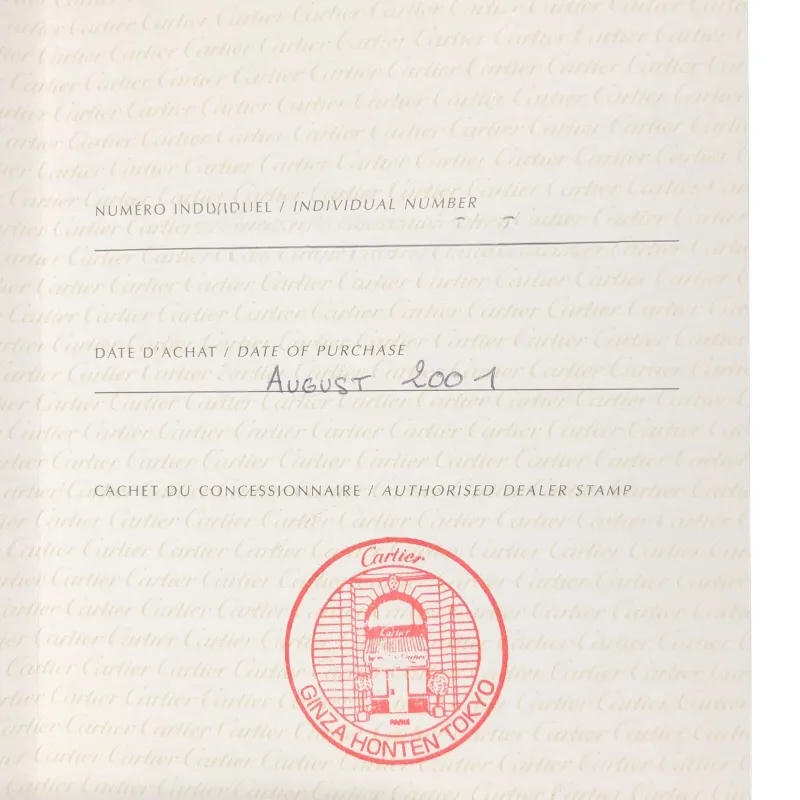 NUMÉRO INDIVIDUEL / INDIVIDUAL NUMBER
DATE D'ACHAT / DATE OF PURCHASE
AUGUST 2001
CACHET DU CONCESSIONNAIRE / AUTHORISED DEALER STAMP
Cartier
Cartier
PARIS
GINZA HONTEN TOKYO